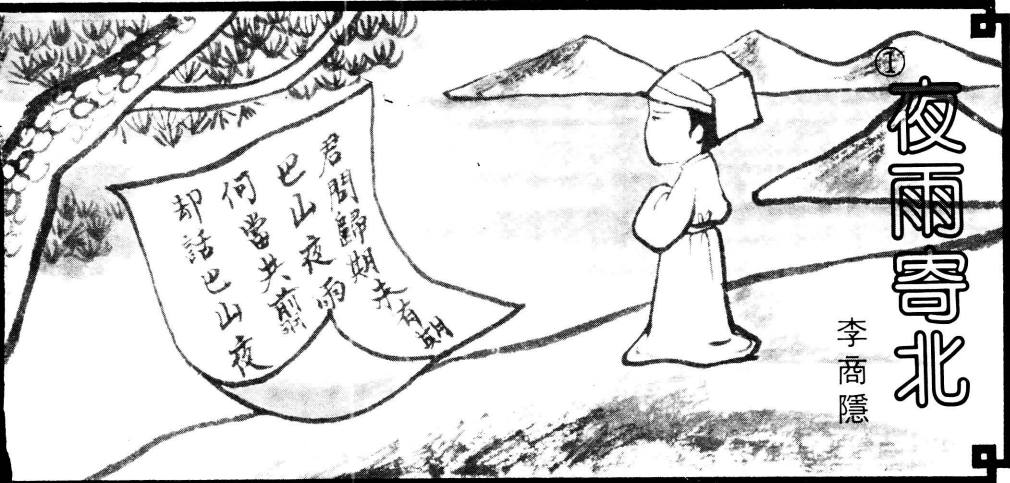 ①
夜雨寄北
李商隱
君問歸期未有期
巴山夜雨
何當共剪
却話巴山夜